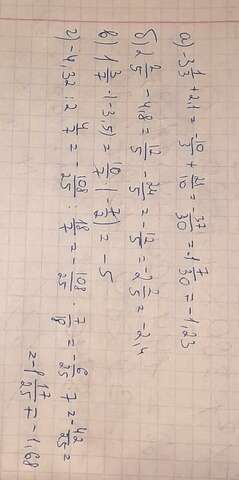 а) -3 1/3 + 2,1 = -10/3 + 21/10 = -37/30 = -1 7/30 = -1,23
б) 2 2/5 - 4,8 = 12/5 - 24/5 = -12/5 = -2 2/5 = -2,4
в) 1 3/7 · (-3,5) = 10/7 · (-7/2) = -5
г) -4,32 : 2 4/7 = -108/25 : 18/7 = -108/25 · 7/18 = -6/25 · 7 = -42/25 =
= -1 17/25 = -1,68